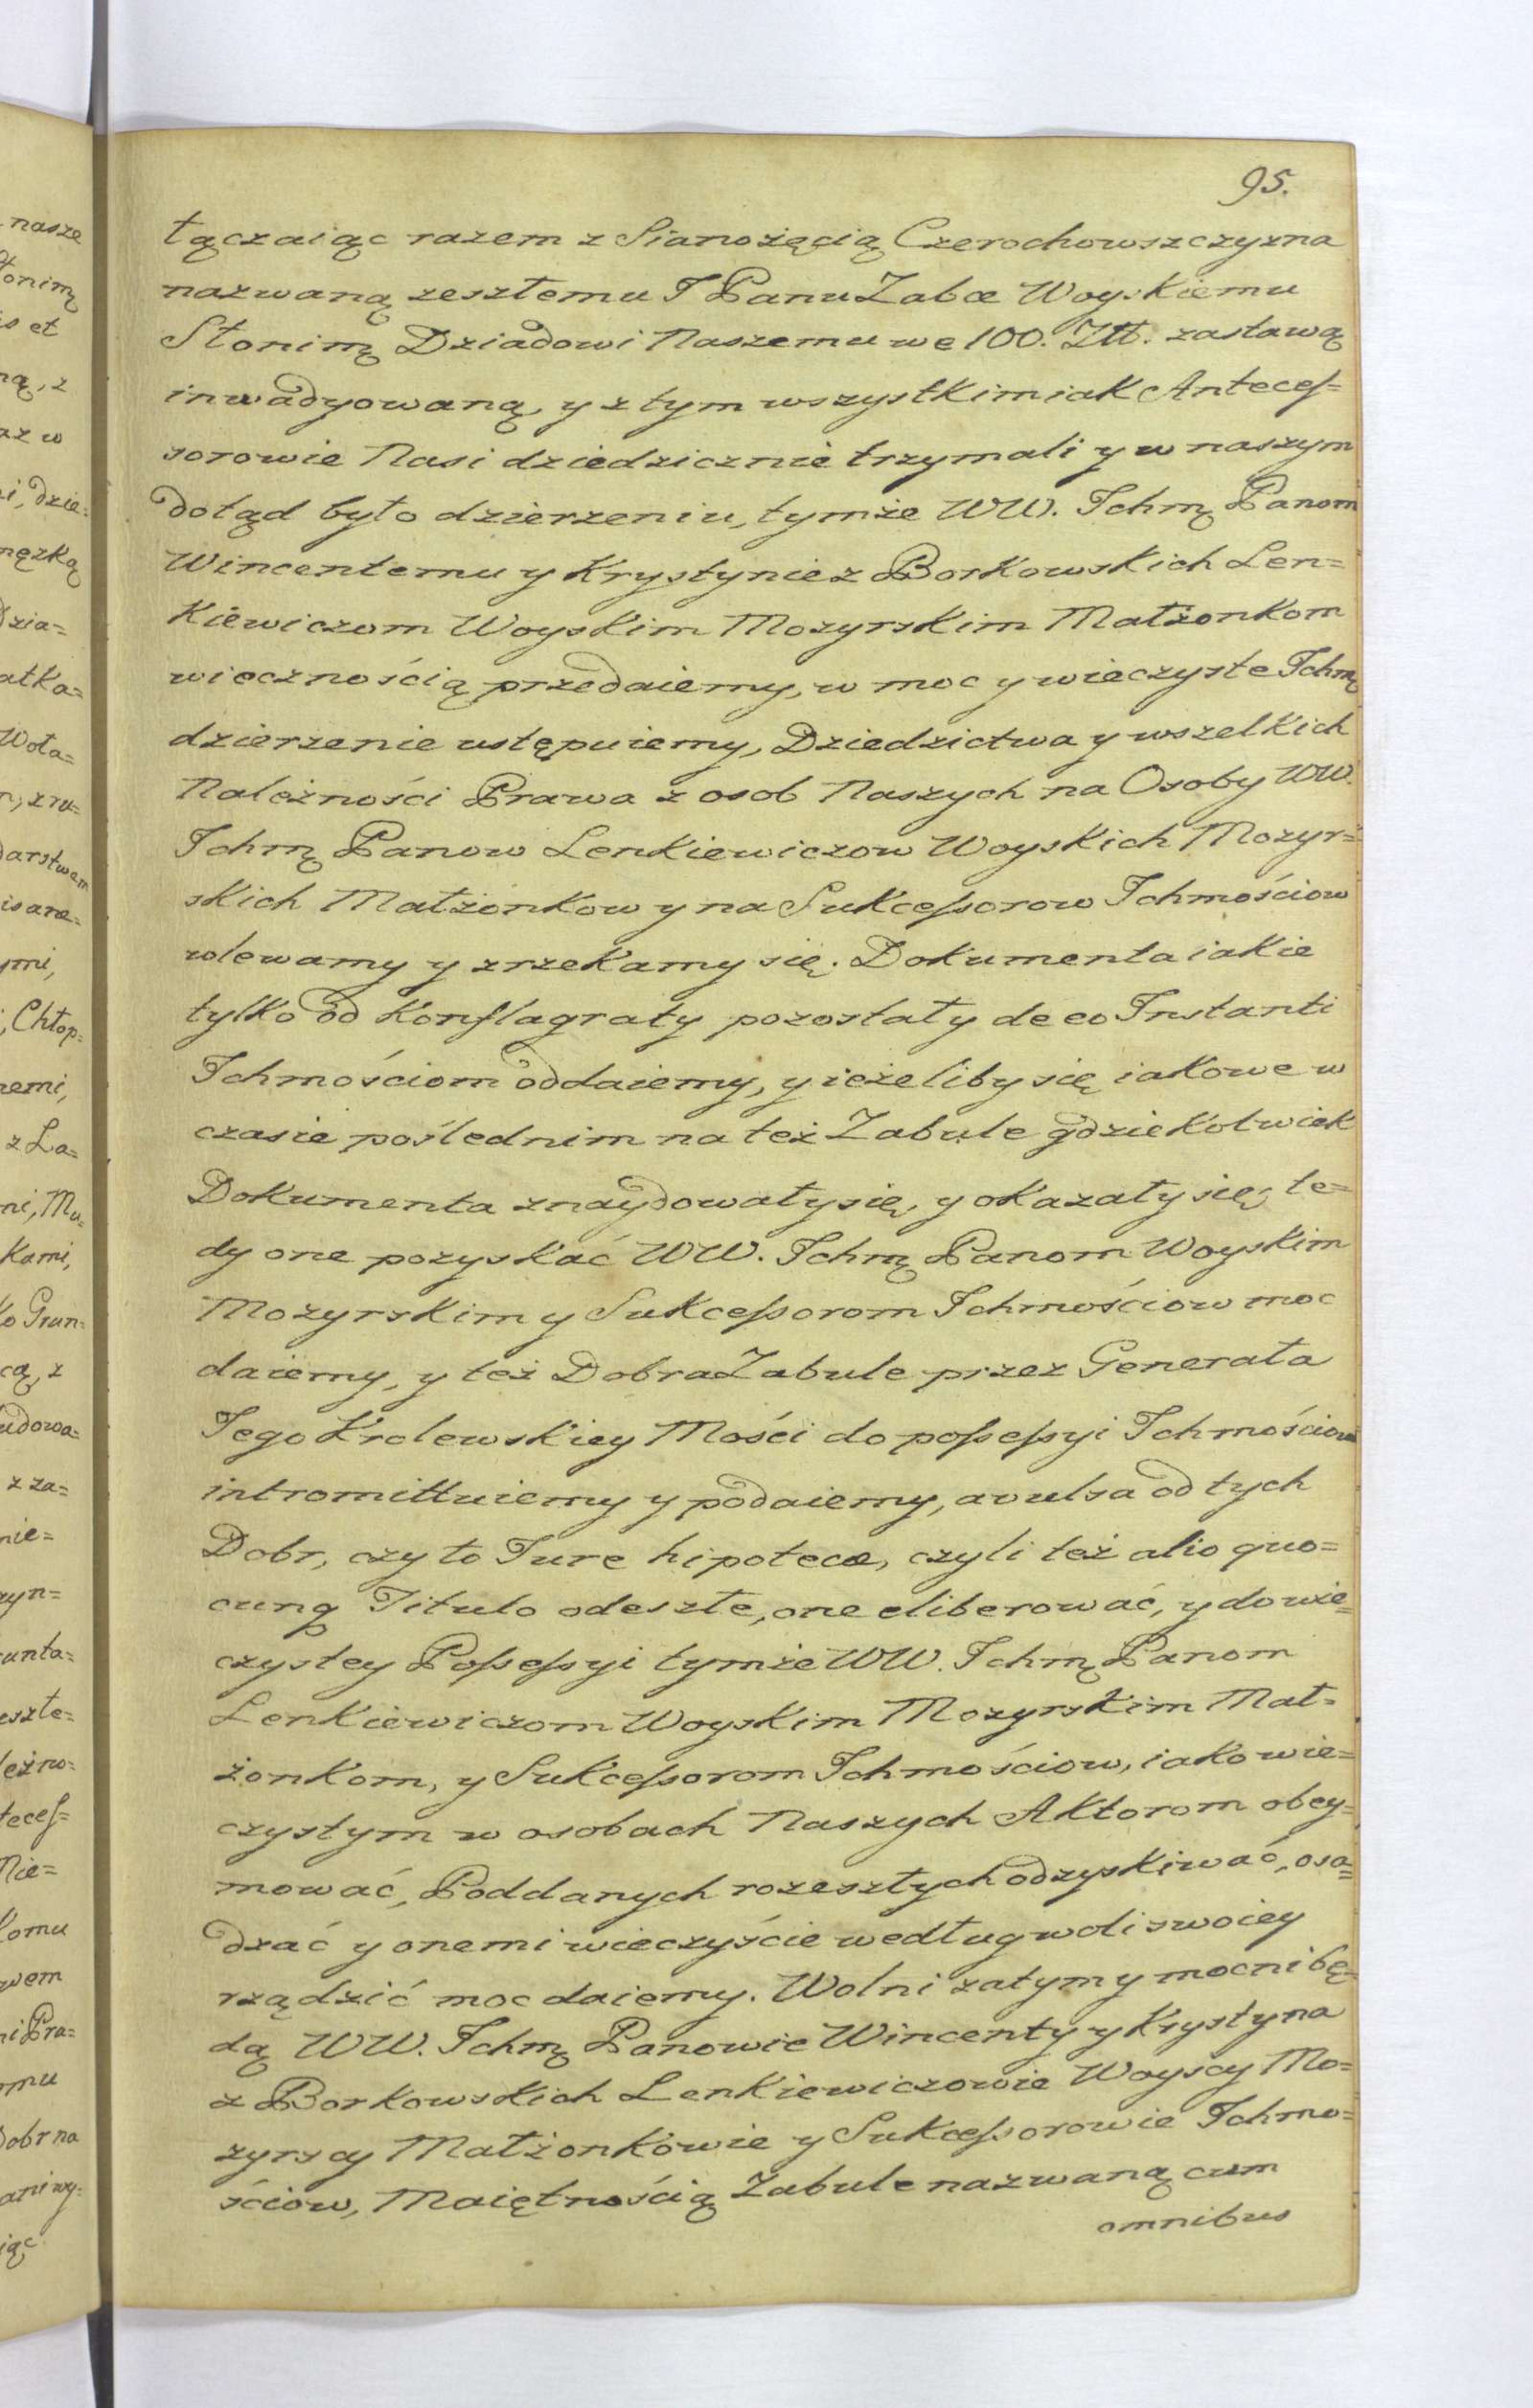 95.
łączaiąc razem z Sianożęcią Czerochowszczyzna
nazwaną zeszłemu J Panu Zabæ Woyskiemu
Słonimᶏ Dziadowi Naszemu we 100. Złł. zastawą
inwadyowaną, y z tym wszystkim iak Anteceſ=
sorowie Nasi dziedzicznie trzymali y w naszym
dotąd było dzierzeniu, tymże WW. Ichmę Panom
Wincentemu y Krystynie z Borkowskich Len=
kiewiczom Woyskim Mozyrskim Małżonkom
wiecznością przedaiemy, w moc y wieczyste Ichmę
dzierzenie ustępuiemy, Dziedzictwa y wszelkich
Należności Prawa z osob Naszych na Osoby WW.
Ichmę Panow Lenkiewiczow Woyskich Mozyr=
skich Małżonkow y na Sukceſsorow Ichmościow
wlewamy y zrzekamy się. Dokumenta iakie
tylko od Konflagraty pozostały de eo Instanti
Ichmościom oddaiemy, y ieżeliby się iakowe w
czasie poślednim na też Zabule gdziekolwiek
Dokumenta znaydowały się, y okazały się, te=
dy one pozyskać WW. Ichmę Panom Woyskim
Mozyrskim y Sukceſsorom Ichmościow moc
daiemy, y też Dobra Zabule przez Generała
Jego Krolewskiey Mości do poſseſsyi Ichmościow
intromittuiemy y podaiemy, avulsa od tych
Dobr, czy to Jure hipotecæ, czyli też alio quo=
cunq Titulo odeszłe, one eliberować, y do wie=
czystey Poſseſsyi tymże WW. Ichmę Panom
Lenkiewiczom Woyskim Mozyrskim Mał=
żonkom, y Sukceſsorom Ichmościow, iako wie=
czystym w osobach Naszych Aktorom obey=
mować, Poddanych rozeszłych odzyskiwać, osa=
dzać y onemi wieczyście według woli swoiey
rządzić moc daiemy. Wolni zatym y mocni bę=
dą WW. Ichmę Panowie Wincenty y Krystyna
z Borkowskich Lenkiewiczowie Woyscy Mo=
zyrscy Małżonkowie y Sukceſsorowie Ichmo=
ściow, Maiętnością Zabule nazwaną cum
omnibus